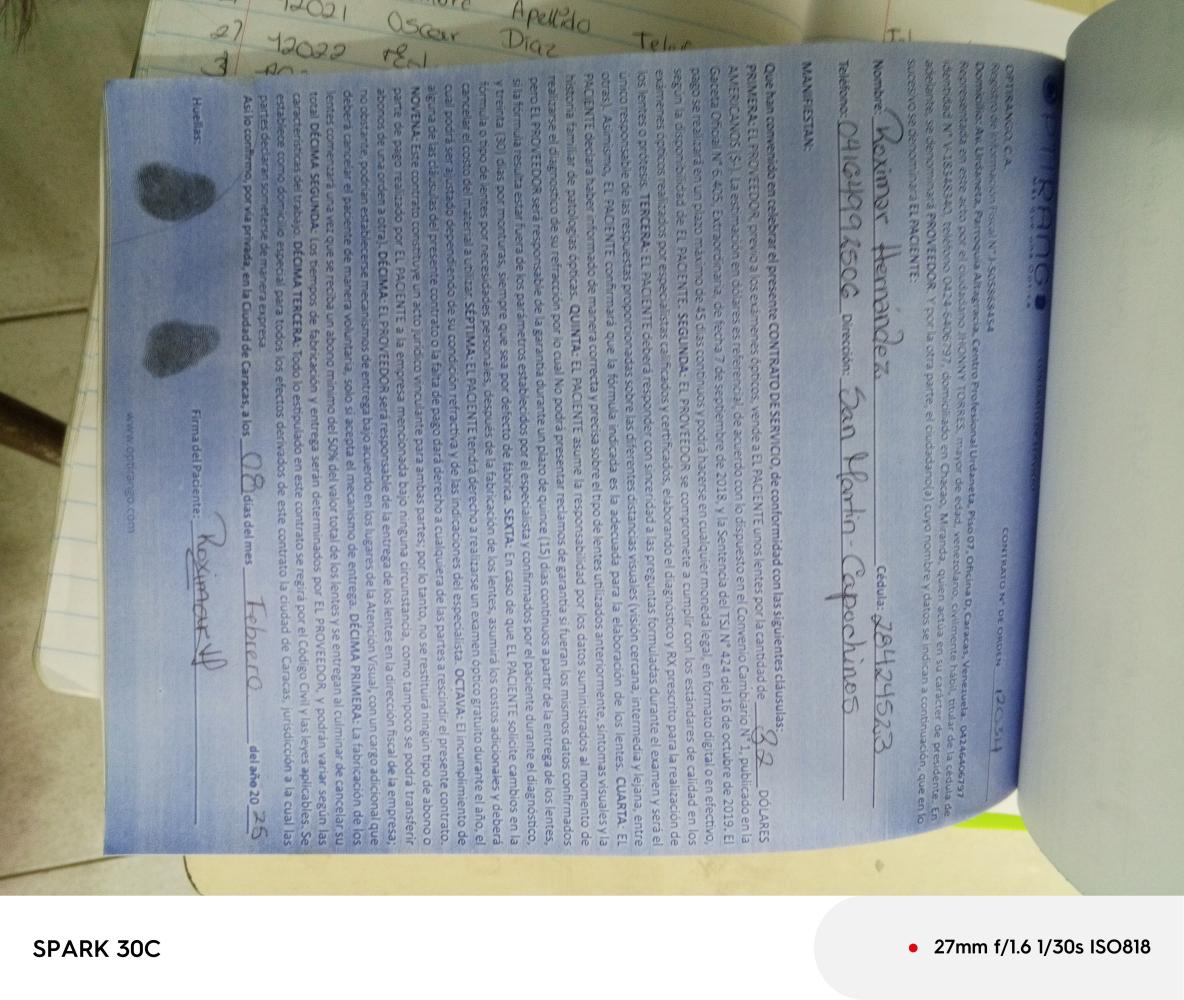 12021 Oscar Apellido
27 12022 Díaz
OPTIRANGO
CONTRATO N° DE ORDEN 12034
OPTIRANGO C.A.
Registro de Información Fiscal N° J-505983454
Domicilio: Av. Urdaneta, Parroquia Altagracia, Centro Profesional Urdaneta, Piso 07, Oficina D, Caracas, Venezuela. 04246406797
Representada en este acto por el ciudadano JHONNY TORRES, mayor de edad, venezolano, civilmente hábil, titular de la cédula de
identidad N° V-18348340, teléfono 0424-6406797, domiciliado en Chacao, Miranda, quien actúa en su carácter de presidente. En
adelante, se denominará PROVEEDOR. Y por la otra parte, el ciudadano(a) cuyo nombre y datos se indican a continuación, que en lo
sucesivo se denominará EL PACIENTE:
Nombre: Roximar Hernández. Cédula: 28424523
Teléfono: 04164992506 Dirección: San Martin Capochinos
MANIFIESTAN:
Que han convenido en celebrar el presente CONTRATO DE SERVICIO, de conformidad con las siguientes cláusulas:
PRIMERA: EL PROVEEDOR, previo a los exámenes ópticos, vende a EL PACIENTE unos lentes por la cantidad de 32 DÓLARES
AMERICANOS ($). La estimación en dólares es referencial, de acuerdo con lo dispuesto en el Convenio Cambiario N° 1, publicado en la
Gaceta Oficial N° 6.405, Extraordinaria, de fecha 7 de septiembre de 2018, y la Sentencia del TSJ N° 424 del 16 de octubre de 2019. El
pago se realizará en un plazo máximo de 45 días continuos y podrá hacerse en cualquier moneda legal, en formato digital o en efectivo,
según la disponibilidad de EL PACIENTE. SEGUNDA: EL PROVEEDOR se compromete a cumplir con los estándares de calidad en los
exámenes ópticos realizados por especialistas calificados y certificados, elaborando el diagnóstico y RX prescrito para la realización de
los lentes o prótesis. TERCERA: EL PACIENTE deberá responder con sinceridad a las preguntas formuladas durante el examen y será el
único responsable de las respuestas proporcionadas sobre las diferentes distancias visuales (visión cercana, intermedia y lejana, entre
otras). Asimismo, EL PACIENTE confirmará que la fórmula indicada es la adecuada para la elaboración de los lentes. CUARTA: EL
PACIENTE declara haber informado de manera correcta y precisa sobre el tipo de lentes utilizados anteriormente, síntomas visuales y la
historia familiar de patologías ópticas. QUINTA: EL PACIENTE asume la responsabilidad por los datos suministrados al momento de
realizarse el diagnóstico de su refracción por lo cual No podrá presentar reclamos de garantía si fueran los mismos datos confirmados
pero EL PROVEEDOR será responsable de la garantía durante un plazo de quince (15) días continuos a partir de la entrega de los lentes,
si la fórmula resulta estar fuera de los parámetros establecidos por el especialista y confirmados por el paciente durante el diagnóstico,
y treinta (30) días por monturas, siempre que sea por defecto de fábrica. SEXTA: En caso de que EL PACIENTE solicite cambios en la
fórmula o tipo de lentes por necesidades personales, después de la fabricación de los lentes, asumirá los costos adicionales y deberá
cancelar el costo del material a utilizar. SÉPTIMA: EL PACIENTE tendrá derecho a realizarse un examen óptico gratuito durante el año, el
cual podrá ser ajustado dependiendo de su condición refractiva y de las indicaciones del especialista. OCTAVA: El incumplimiento de
alguna de las cláusulas del presente contrato o la falta de pago dará derecho a cualquiera de las partes a rescindir el presente contrato.
NOVENA: Este contrato constituye un acto jurídico vinculante para ambas partes; por lo tanto, no se restituirá ningún tipo de abono o
parte de pago realizado por EL PACIENTE a la empresa mencionada bajo ninguna circunstancia, como tampoco se podrá transferir
abonos de una orden a otra. DÉCIMA: EL PROVEEDOR será responsable de la entrega de los lentes en la dirección fiscal de la empresa;
no obstante, podrán establecerse mecanismos de entrega bajo acuerdo en los lugares de la Atención Visual, con un cargo adicional que
deberá cancelar el paciente de manera voluntaria, solo si acepta el mecanismo de entrega. DÉCIMA PRIMERA: La fabricación de los
lentes comenzará una vez que se reciba un abono mínimo del 50% del valor total de los lentes y se entregan al culminar de cancelar su
total. DÉCIMA SEGUNDA: Los tiempos de fabricación y entrega serán determinados por EL PROVEEDOR, y podrán variar según las
características del trabajo. DÉCIMA TERCERA: Todo lo estipulado en este contrato se regirá por el Código Civil y las leyes aplicables. Se
establece como domicilio especial para todos los efectos derivados de este contrato la ciudad de Caracas, jurisdicción a la cual las
partes declaran someterse de manera expresa.
Así lo confirmo, por vía privada, en la Ciudad de Caracas, a los 08 días del mes Febrero del año 20 25
Huellas: Firma del Paciente: Roximar H
www.optirango.com
SPARK 30C
27mm f/1.6 1/30s ISO818